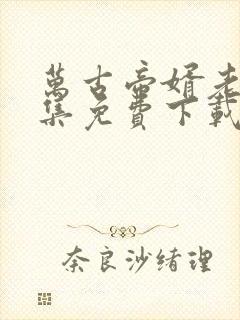 萬古帝婿
集免費下載
奈良沙緒理